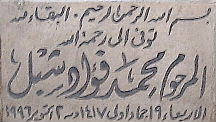 بسم الله الرحمن الرحيم . البقاء لله
توفى الى رحمة الله
المرحوم محمد فؤاد شبل
الاربعاء ١٩ جماد اولى ١٤١٧ هـ ٢ اكتوبر ١٩٩٦